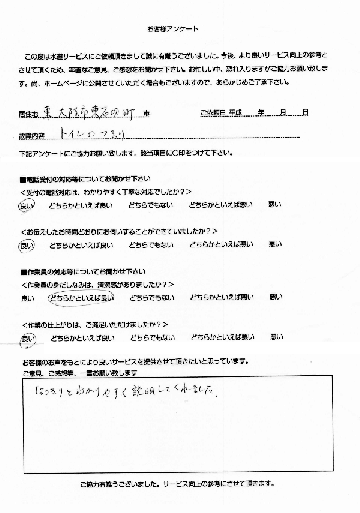 お客様アンケート
この度は水道サービスにご依頼頂きまして誠に有難うございました。今後、より良いサービス向上の参考と
させて頂くため、率直なご意見、ご感想をお聞かせ下さい。お忙しい中、恐れ入りますがご記入お願い致しま
す。尚、ホームページに公開させていただく場合もございますので、あらかじめご了承下さい。
居住地 東大阪市 町 ご依頼日 平成 年 月 日
故障内容 トイレのつまり
下記アンケートにご協力お願い致します。該当項目に○印をつけて下さい。
■電話受付の対応等についてお聞かせ下さい
<受付の電話対応は、わかりやすく丁寧な対応でしたか？>
良い どちらかといえば良い どちらでもない どちらかといえば悪い 悪い
<お伝えしたお時間どおりにお伺いすることができていましたか？>
良い どちらかといえば良い どちらでもない どちらかといえば悪い 悪い
■作業員の対応等についてお聞かせ下さい
<作業員の身だしなみは、清潔感がありましたか？>
良い どちらかといえば良い どちらでもない どちらかといえば悪い 悪い
<作業の仕上がりは、ご満足いただけましたか？>
良い どちらかといえば良い どちらでもない どちらかといえば悪い 悪い
お客様のお声をもとにより良いサービスを提供させて頂きたいと思っています。
ご意見、ご感想等、一言お願い致します
はっきりとわかりやすく説明してくれました。
ご協力有難うございました。サービス向上の参考にさせて頂きます。